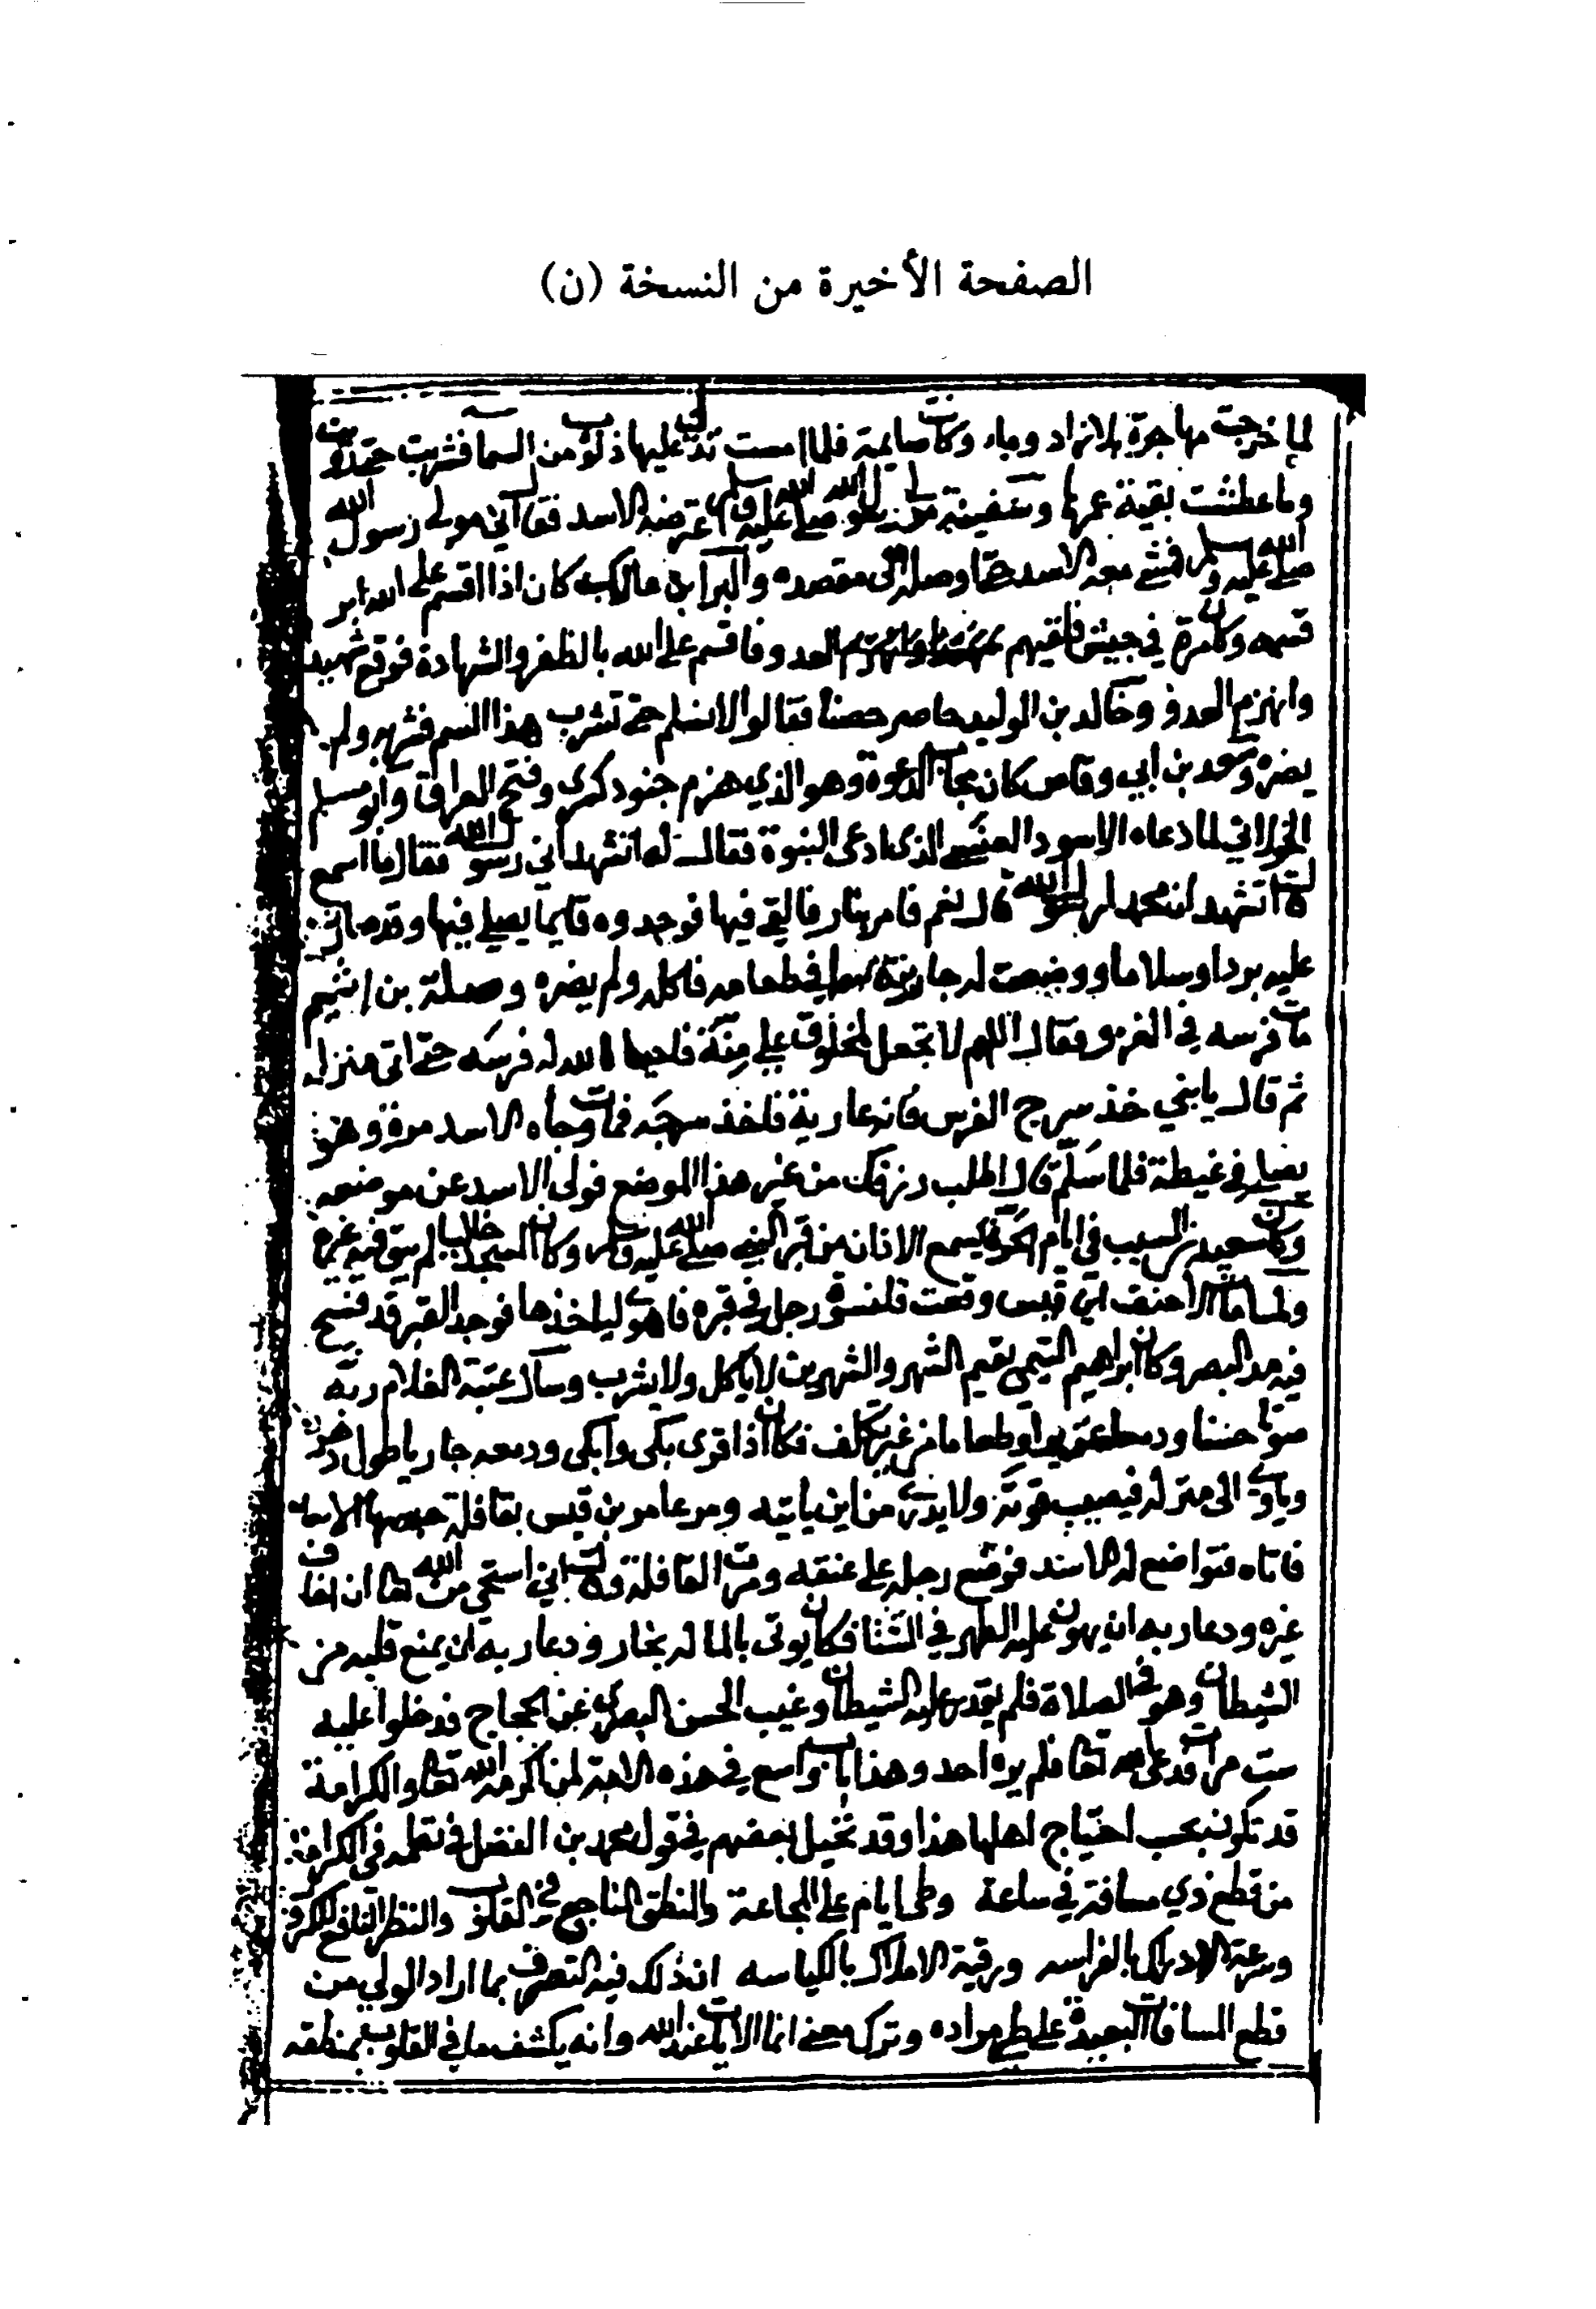 الصفحة الأخيرة من النسخة (ن)
لما خرجت مهاجرة بلا زاد وماء وكانت صايمة فلما امست تدلى عليها ذلو من السما فشربت حتى رويت
وما عطشت بقية عمرها وسفينة مولى رسول الله صلى الله عليه وسلم اعترضه الاسد فقال اني مولى رسول الله
صلى الله عليه وسلم فمشى معه الاسد حتى اوصله الى مقصده والبرا بن مالك كان اذا اقسم على الله ابر
قسمه وكان مرة في جيش فلقيهم العدو فاقسم على الله بالظفر والشهادة فوقع شهيد
وانهزم العدو وخالد بن الوليد حاصر حصنا فقالوا لا نسلم حتى تشرب هذا السم فشربه ولم
يضره وسعد بن ابي وقاص كان مجاب الدعوة وهو الذي هزم جنود كسرى وفتح العراق وابو مسلم
الخولاني لما دعاه الاسود العنسي الذي ادعى النبوة فقال له اتشهد اني رسول الله فقال ما اسمع
قال اتشهد ان محمدا رسول الله قال نعم فامر بنار فالقي فيها فوجدوه قايما يصلي فيها وقد صارت
عليه بردا وسلاما ووضعت له جارية سما في طعامه فاكله ولم يضره وصلة بن اشيم
مات فرسه في الغزو فقال اللهم لا تجعل لمخلوق علي منة فاحيا الله له فرسه حتى اتى منزله
ثم قال يا بني خذ سرج الفرس فانه عارية فاخذ سرجه فمات وجاه الاسد مرة وهو
يصلي في غيطة فلما سلم قال اطلب رزقك من غير هذا الموضع فولى الاسد عن موضعه
وكان سعيد بن المسيب في ايام الحرة يسمع الاذان من قبر النبي صلى الله عليه وسلم وكان المسجد خاليا لم يبق فيه غيره
ولما مات الاحنف ابن قيس وقعت قلنسوة رجل في قبره فاهوى لياخذها فوجد القبر قد فسح
فيه مد البصر وكان ابراهيم التيمي يقيم الشهر والشهرين لا ياكل ولا يشرب وسال عتبة الغلام ربه
صوتا حسنا ودمعا غزيرا وطعاما من غير تكلف فكان اذا قرى بكى وابكى ودمعه جاريا طول دهره
وياوي الى منزله فيصيب قوته ولا يدري من اين ياتيه ومر عامر بن قيس بقافلة حبسها الاسد
فاتاه فتواضع له الاسد فوضع رجله على عنقه ومرت القافلة وقال اني استحي من الله تعا ان اخاف
غيره ودعا ربه ان يهون عليه الطهر في الشتا فكان يوتى بالما له بخار ودعا ربه ان يمنع قلبه من
الشيطان وهو في الصلاة فلم يقدر عليه الشيطان وغيب الحسن البصري عن الحجاج فدخلوا عليه
ست مرات فدعا الله تعا فلم يره احد وهذا باب واسع في هذه الامة لمن اكرمه الله تعا والكرامة
قد تكون بحسب احتياج اهلها هذا وقد تخيل بعضهم في قول محمد بن الفضل في نظمه في الكرامة
من قطع ذي مسافة في ساعة وطي ايام على المجاعة والنطق الناجع في القلوب والنظر النافع للكروب
وسرعة الادراك بالفراسه ورقية الاملاك بالكياسه ان ذلك فيه التصرف بما اراد الولي من
قطع المسافات البعيدة على طي مراده وترك معنى انما الايات عند الله وانه يكشف ما في القلوب بمنطقه